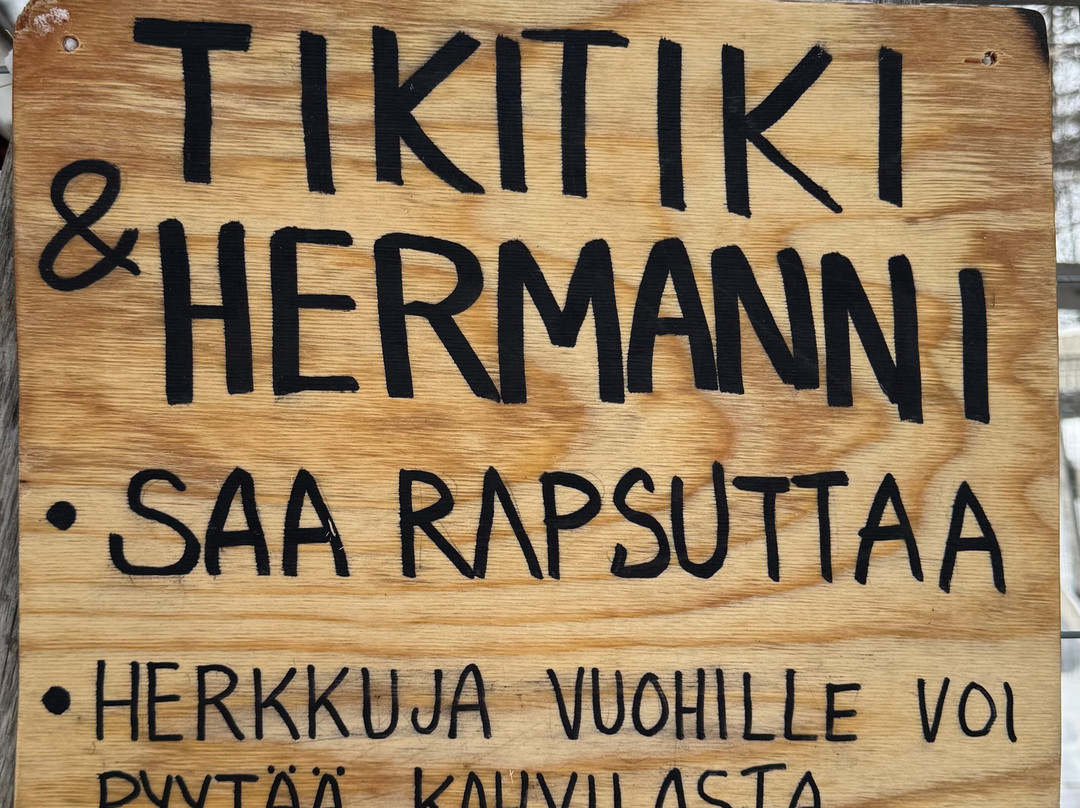 TIKITIKI
& HERMANNI
• SAA RAPSUTTAA
• HERKKUJA VUOHILLE VOI
PYYTÄÄ KAHVILASTA